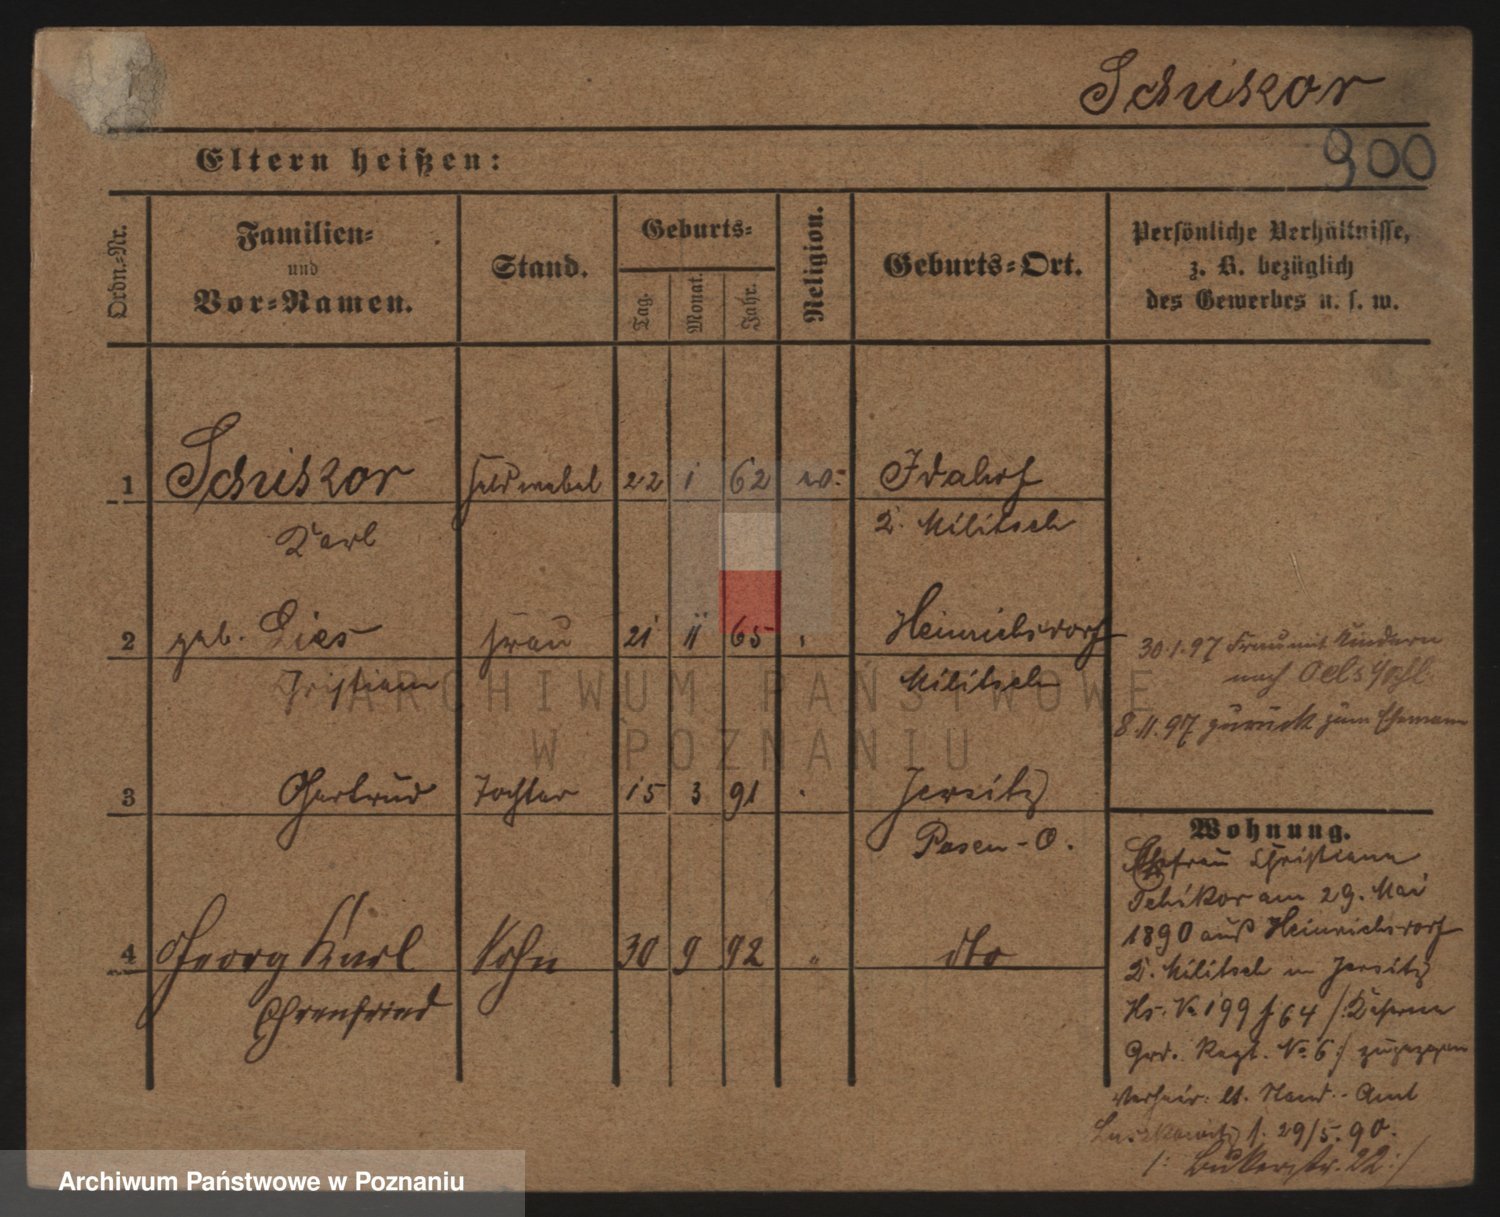 Schiskor
900
Eltern heißen:
Ordn.-Nr.
Familien-
und
Vor-Namen.
Stand.
Geburts-
Tag.
Monat.
Jahr.
Religion.
Geburts-Ort.
Persönliche Verhältnisse,
z. B. bezüglich
des Gewerbes u. s. w.
1 Schiskor Feldwebel 22 1 62
Karl K. Militsch
2 geb. Dies Frau 21 11 65 Heinrichsdorf
Militsch
30.1.97 Frau mit Kindern
nach Oels
8.11.97 zurück zum Ehemann
3 Gertrud Tochter 15 3 91 Jersitz
Posen-O.
4 Georg Karl Sohn 30 9 92 " dto
Ehrenfried
Wohnung.
Ehefrau Christiane
Schikor am 29. Mai
1890 aus Heinrichsdorf
K. Militsch in Jersitz
Hs. No 199 f 64 /: Kaserne
Grd. Regt. No 6 :/ zugezogen
lt. Stand.-Amt
29/5.90.
/: Bukerstr. 22 :/
ARCHIWUM PAŃSTWOWE
W POZNANIU
Archiwum Państwowe w Poznaniu